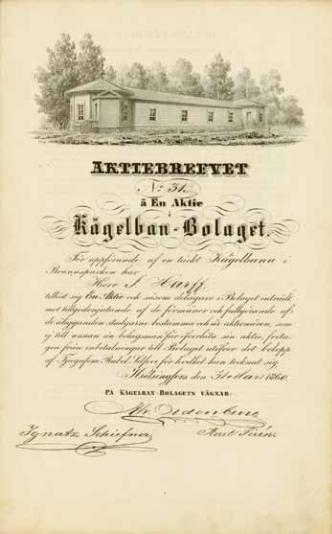 AKTIEBREFVET
No 31.
à En Aktie
i
Kägelban-Bolaget.
För uppförande af en täckt Kägelbana i
Brunnsparken har
Herr J. Harff
tillöst sig En Aktie och såsom delägare i Bolaget inträdt,
mot tillgodonjutande af de förmåner och fullgörande af
de åligganden stadgarne bestämma och är aktionären, som
ej till annan än bolagsman får föryttra sin aktie, fritagen
från inbetalningar till Bolaget utöfver det belopp
af Tjugofem Rubel Silfver för hvilket han tecknat sig.
Helsingfors den 31 Mars 1860.
PÅ KÄGELBAN-BOLAGETS VÄGNAR:
Ignatz Schiefner